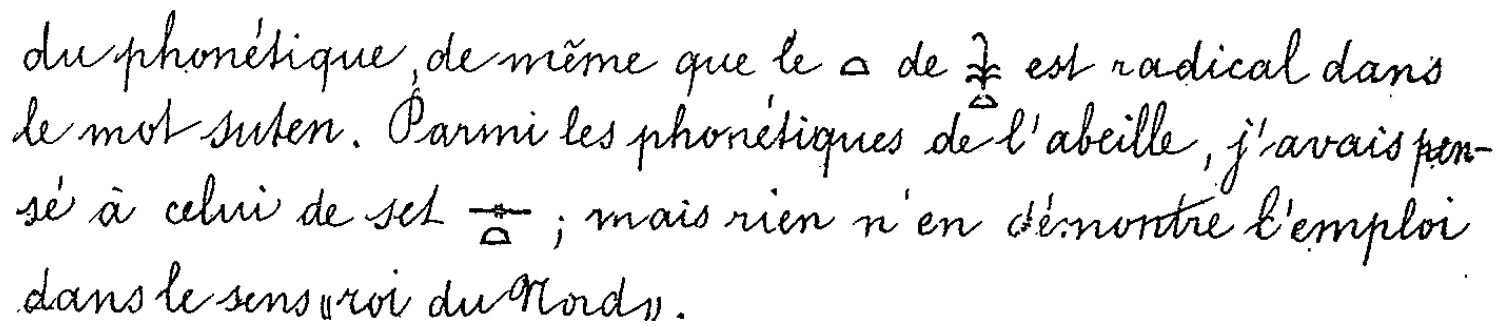 du phonétique, de même que le 𓏏 de 𓇓𓏏 est radical dans
le mot suten. Parmi les phonétiques de l'abeille, j'avais pen-
sé à celui de set 𓊃𓏏 ; mais rien n'en démontre l'emploi
dans le sens « roi du Nord ».